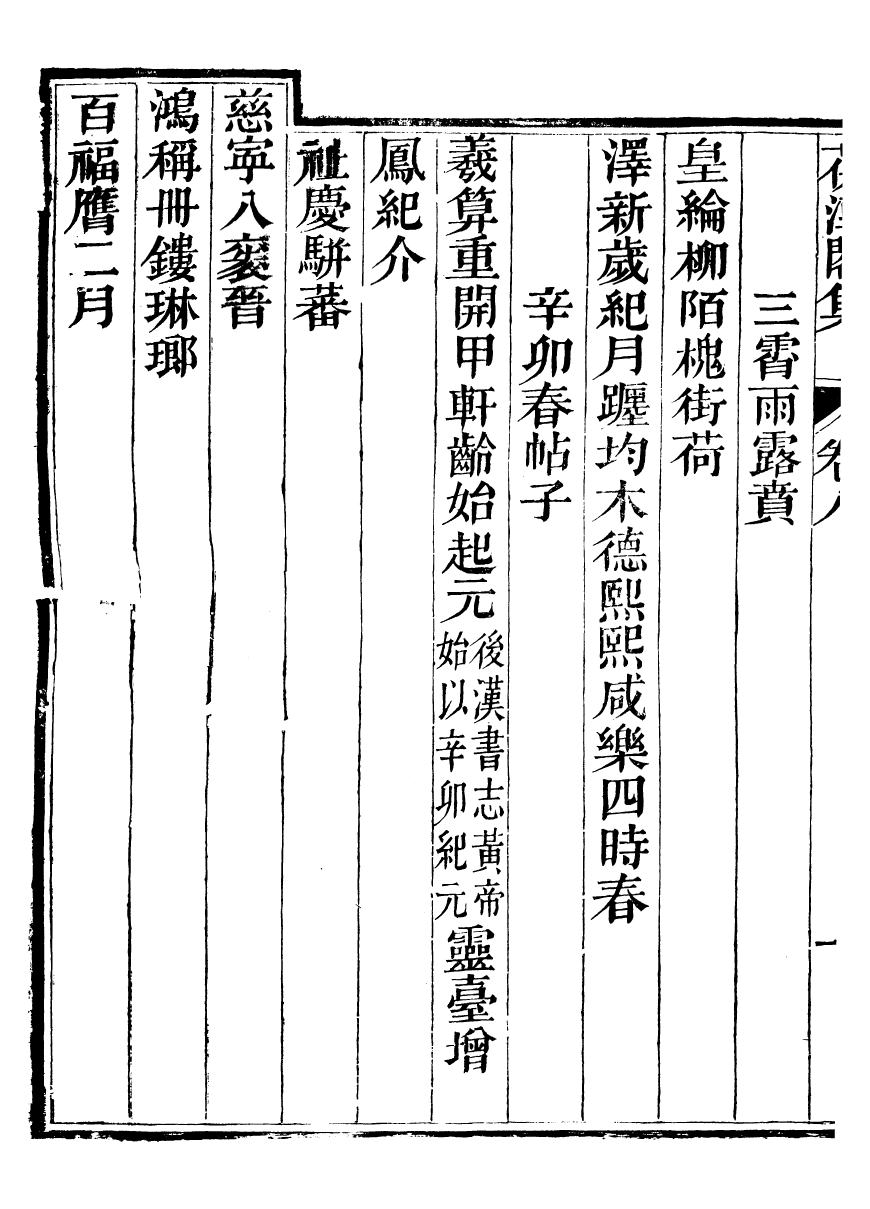 葆淳閣集　卷八　一
三霄雨露賁
皇綸柳陌槐街荷
澤新歲紀月躔均木德熙熙咸樂四時春
辛卯春帖子
羲算重開甲軒齡始起元後漢書志黃帝始以辛卯紀元靈臺增
鳳紀介
祉慶駢蕃
慈寧八袠晉
鴻稱冊鏤琳瑯
百福膺二月